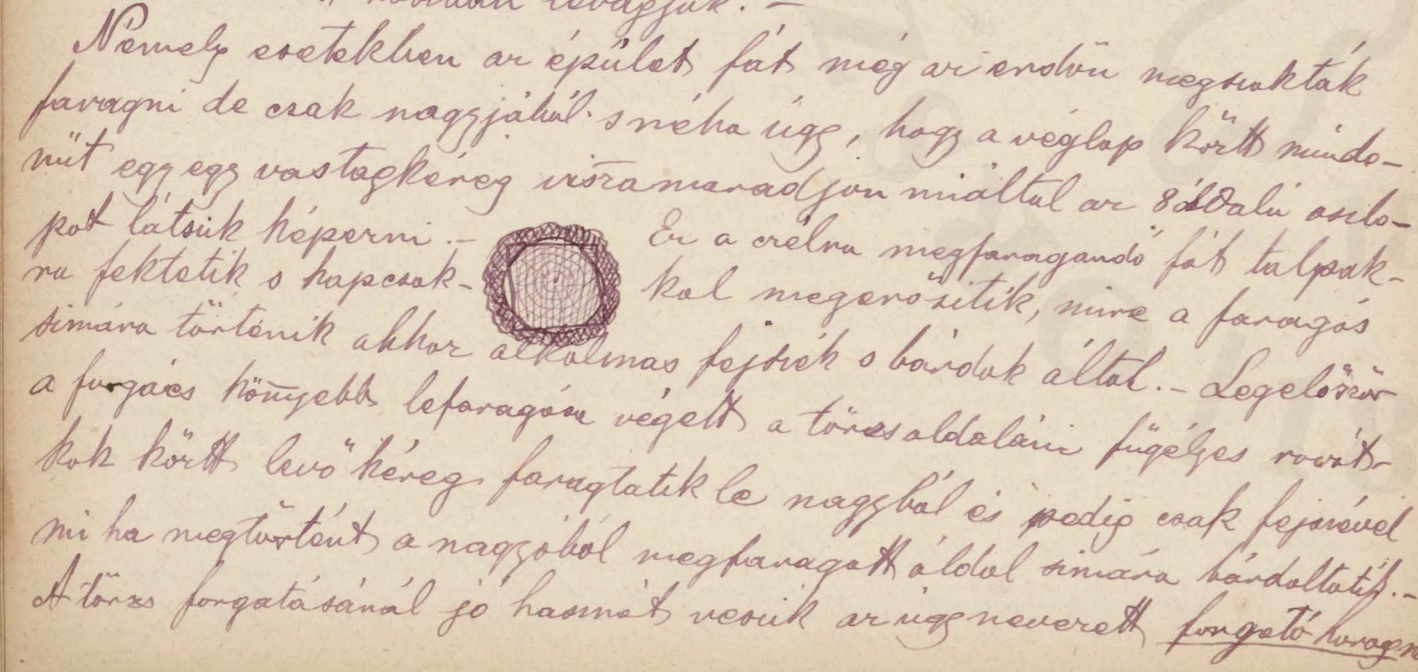 levágjuk. –
Némely esetekben az épület fát még az erdőn megszokták
faragni de csak nagyjából s néha úgy, hogy a véglap között minde-
nütt egy egy vastagkéreg visszamaradjon miáltal az 8 oldalú oszlo-
pot látsik képezni. – Ez a czélra megfaragandó fát talpak-
ra fektetik s kapcsok- kal megerősitik, mire a faragás
simára történik akkor alkalmas fejszék s bárdok által. – Legelőször
a forgács könnyebb lefaragása végett a törzsoldaláni függélyes rovát-
kok között levő kéreg faragtatik le nagyból és pedig csak fejszével
mi ha megtörtént a nagyából megfaragott óldal simára bárdoltatik. –
A törzs forgatásánál jó hasznát veszik az úgy nevezett forgató horog